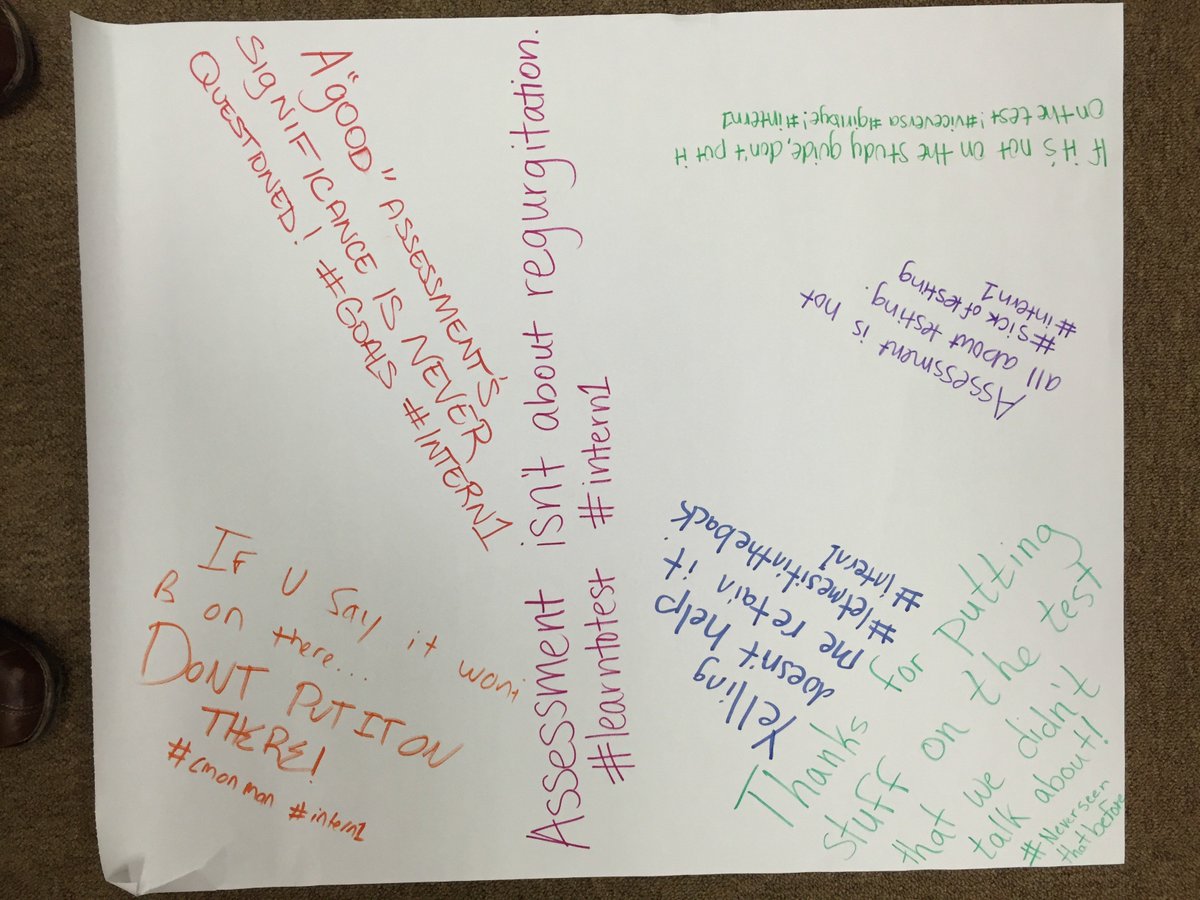 A "GOOD" ASSESSMENT'S
SIGNIFICANCE IS NEVER
QUESTIONED! #GOALS #INTERN1
If it's not on the study guide, don't put it
On the test! #viceversa #girlbye! #intern1
Assessment isn't about regurgitation.
#learntotest #intern1
Assessment is not
all about testing.
#sick of testing
#intern1
IF U Say it woni
B on there...
DONT PUT IT ON
THERE!
#cmonman #intern1
Yelling
doesn't help
me retain it
#letmesitintheback
#intern1
Thanks for putting
stuff on the test
that we didn't
talk about!
#Neverseen
that before